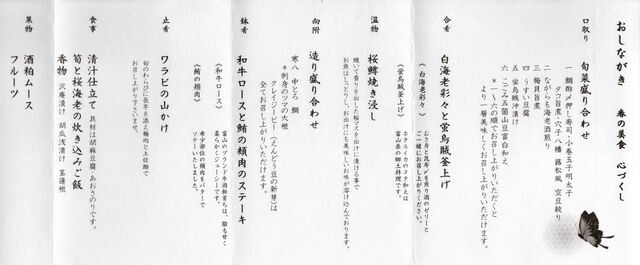 おしながき　春の蛍会　心づくし
口取り　旬菜盛り合わせ
一　鯛酢〆押し寿司、小巻玉子明太子
タコ旨煮、穴子八幡　蕗松風、空豆絞り
二　ながらも海老酒煎り
三　梅貝旨煮
四　うすい豆腐
五　蛍烏賊沖漬け
六　こごみ五箇山豆富白和え
＊一～六の順でお召し上がりいただくと
より一層美味しくお召し上がりいただけます。
合肴　白海老彩々と蛍烏賊釜上げ
《白海老彩々》
むき身と昆布〆を煎り酒のゼリーと
ご一緒にお召し上がりください。
《蛍烏賊釜上げ》
ホタルイカのヌタ和えは
富山県の郷土料理です。
温物　桜鱒焼き浸し
焼いて香りを出した桜マスを出汁に漬ける事で
お魚はしっとりし、お出汁にも美味しいお味が溶け込んでおります。
向附　造り盛り合わせ
寒八　中とろ　鯛
＊刺身のツマの大根
クレイジーピー（えんどう豆の新芽）は
全てお召し上がりいただけます。
鉢肴　和牛ロースと鮪の頬肉のステーキ
《和牛ロース》
富山のブランド牛酒粕育ちは、脂も甘く
柔らかくジューシーです。
《鮪の頬肉》
希少部位の頬肉をバターで
ソテーいたしました。
止肴　ワラビの山かけ
旬のわらびに長芋を添え梅肉と土佐酢で
お召し上がり下さいませ。
食事　清汁仕立て　具材は胡麻豆腐　あおさのりです。
筍と桜海老の炊き込みご飯
香物　沢庵漬け　胡瓜浅漬け　茎蓮根
果物　酒粕ムース
フルーツ